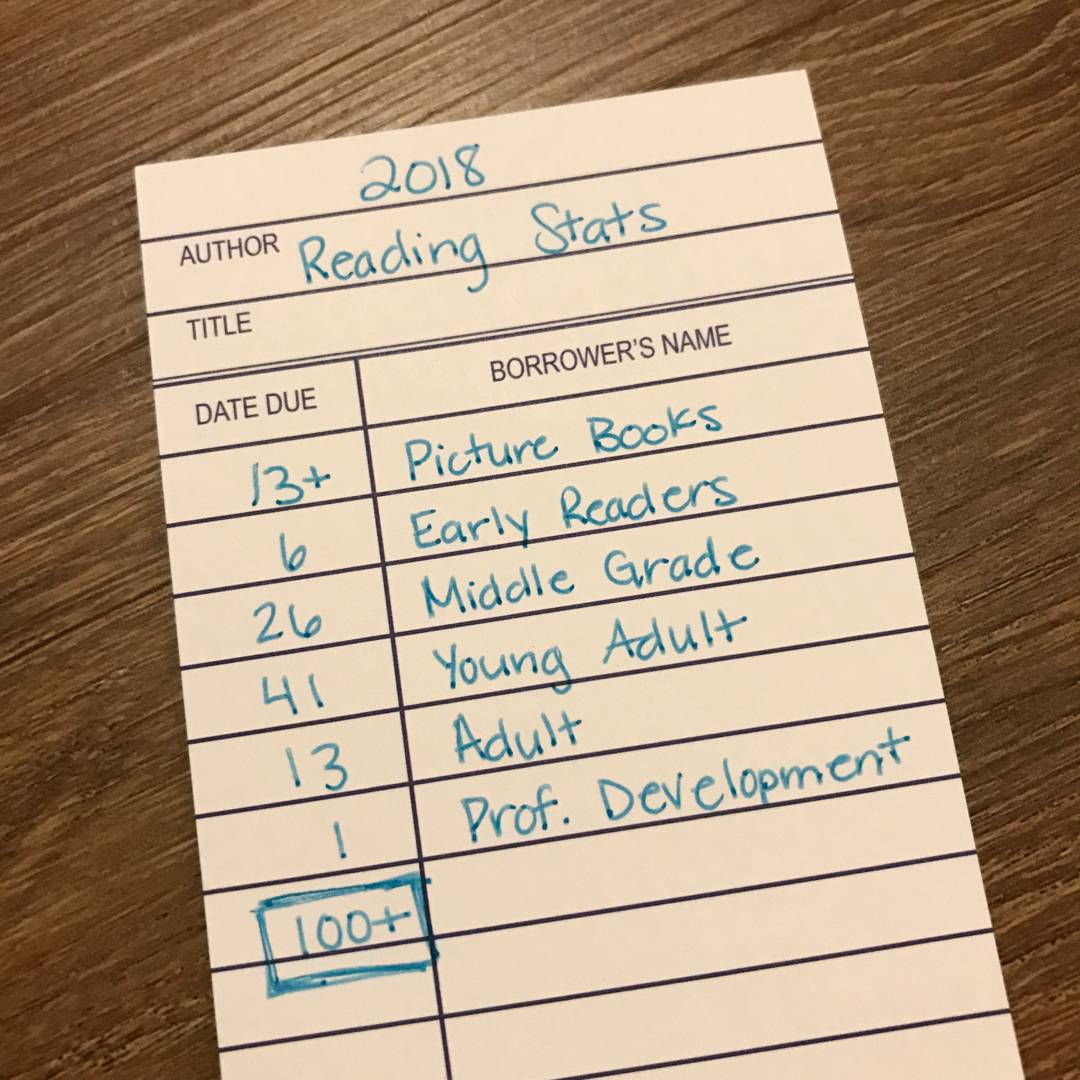 2018
AUTHOR Reading Stats
TITLE
DATE DUE BORROWER'S NAME
13+ Picture Books
6 Early Readers
26 Middle Grade
41 Young Adult
13 Adult
1 Prof. Development
100+